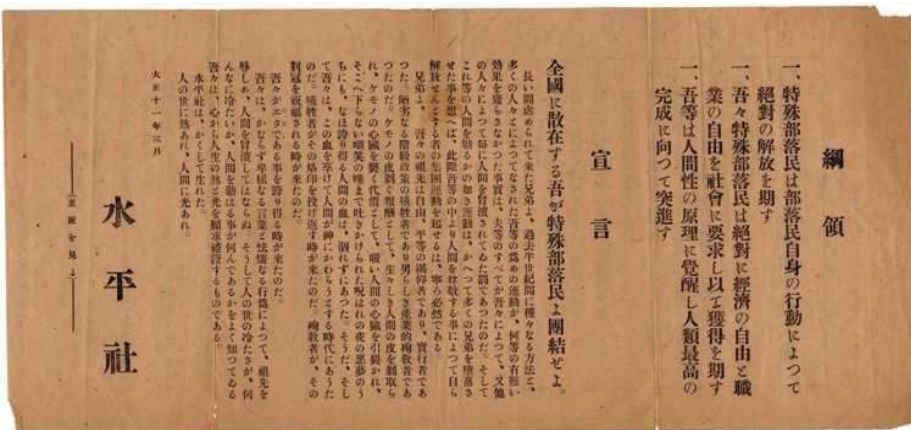 綱領
一、特殊部落民は部落民自身の行動によつて
絶對の解放を期す
一、吾々特殊部落民は絶對に經濟の自由と職
業の自由を社會に要求し以て獲得を期す
一、吾等は人間性の原理に覺醒し人類最高の
完成に向つて突進す
宣言
全國に散在する吾が特殊部落民よ團結せよ。
長い間虐められて來た兄弟よ、過去半世紀間に種々なる方法と、
多くの人々とによつてなされた吾等の爲めの運動が、何等の有難い
効果を齎らさなかつた事實は、夫等のすべてが吾々によつて、又他
の人々によつて毎に人間を冒瀆されてゐた罰であつたのだ。そして
これ等の人間を勦るかの如き運動は、かへつて多くの兄弟を墮落さ
せた事を想へば、此際吾等の中より人間を尊敬する事によつて自ら
解放せんとする者の集團運動を起せるは、寧ろ必然である。
兄弟よ、吾々の祖先は自由、平等の渇仰者であり、實行者であ
つた。陋劣なる階級政策の犧牲者であり男らしき產業的殉敎者であ
つたのだ。ケモノの皮剝ぐ報酬として、生々しき人間の皮を剝取ら
れ、ケモノの心臟を裂く代價として、暖い人間の心臟を引裂かれ、
そこへ下らない嘲笑の唾まで吐きかけられた呪はれの夜の惡夢のう
ちにも、なほ誇り得る人間の血は、涸れずにあつた。そうだ、そし
て吾々は、この血を享けて人間が神にかわらうとする時代にあうた
のだ。犧牲者がその烙印を投げ返す時が來たのだ。殉敎者が、その
荊冠を祝福される時が來たのだ。
吾々がエタである事を誇り得る時が來たのだ。
吾々は、かならず卑屈なる言葉と怯懦なる行爲によつて、祖先を
辱しめ、人間を冒瀆してはならぬ。そうして人の世の冷たさが、何
んなに冷たいか、人間を勦はる事が何んであるかをよく知つてゐる
吾々は、心から人生の熱と光を願求禮讃するものである。
水平社は、かくして生れた。
人の世に熱あれ、人間に光あれ。
大正十一年三月
水平社
裏面を見よ